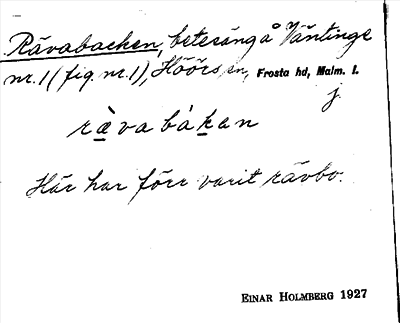 Rävabacken, betesäng å Väntinge
nr. 1 (fig. nr. 1), Höörs sn, Frosta hd, Malm. l.
j
rävabákan
Här har förr varit rävbo.
EINAR HOLMBERG 1927